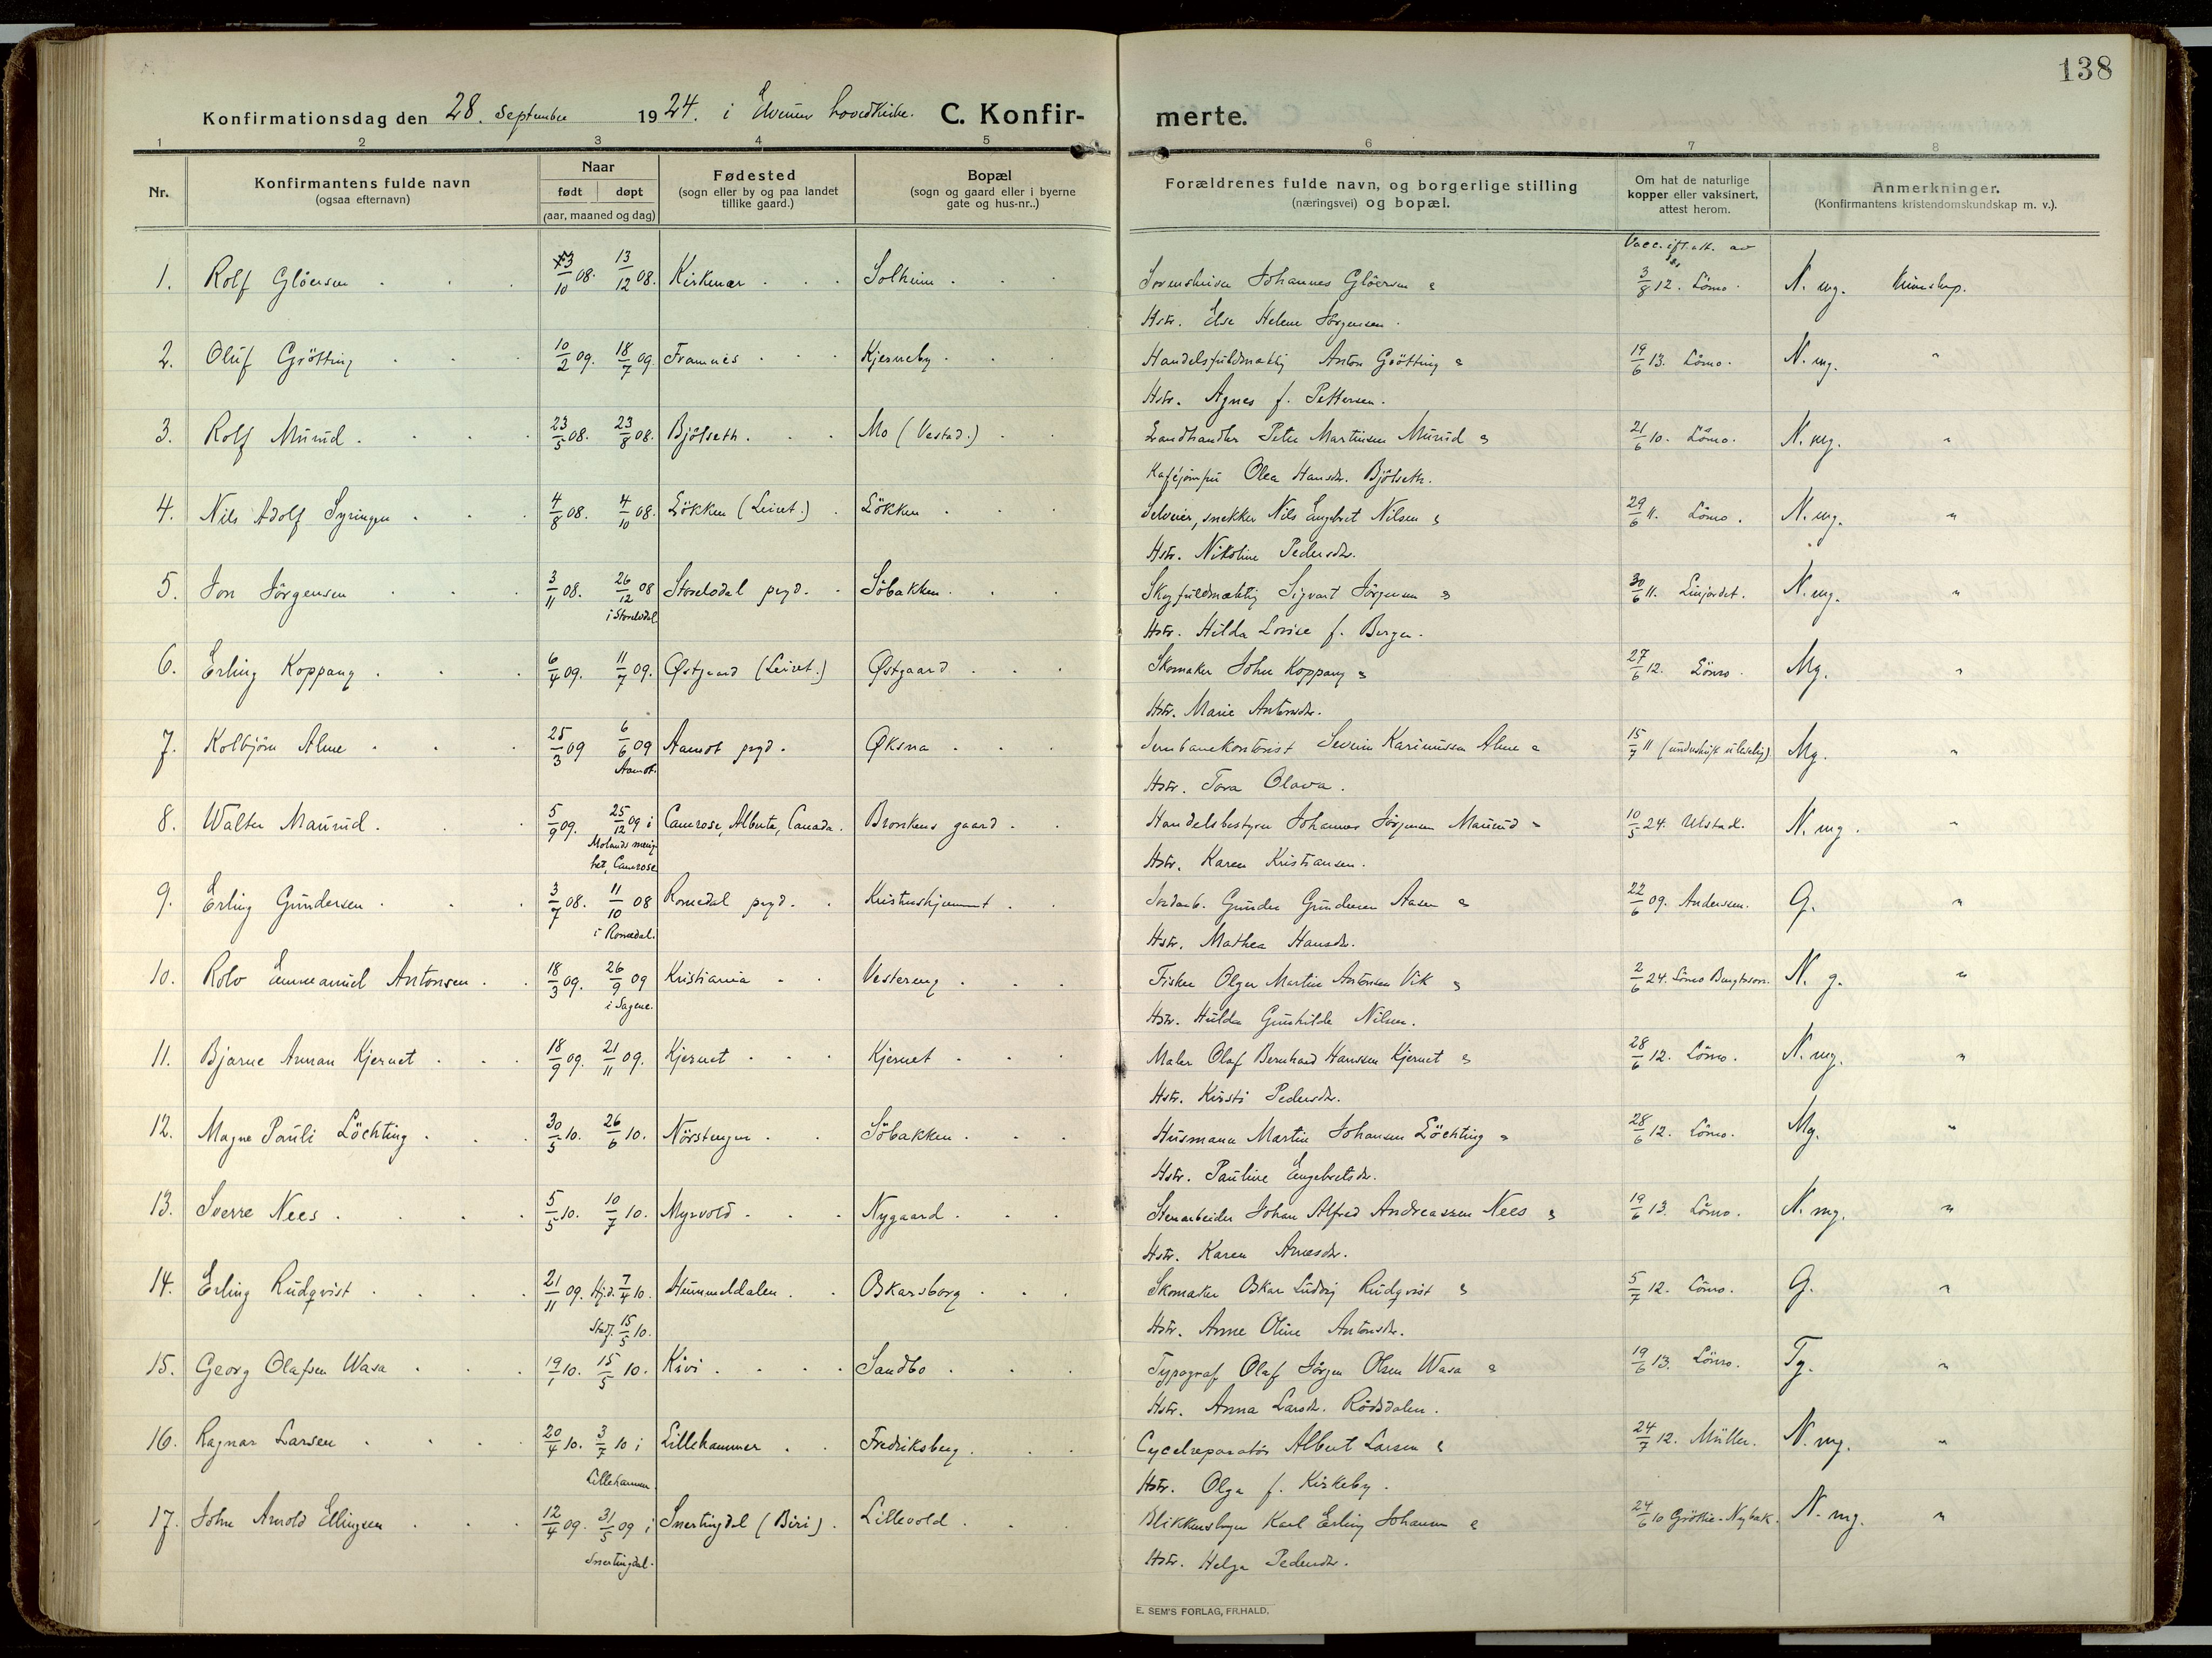 138
Konfirmationsdag den 28. September 1924. i Elverum hovedkirke. C. Konfirmerte.
1 2 3 4 5 6 7 8
Nr. Konfirmantens fulde navn (ogsaa efternavn) Naar født døpt (aar, maaned og dag) Fødested (sogn eller by og paa landet tillike gaard.) Bopæl (sogn og gaard eller i byerne gate og hus-nr..) Forældrenes fulde navn, og borgerlige stilling (næringsvei) og bopæl. Om hat de naturlige kopper eller vaksinert, attest herom. Anmerkninger. (Konfirmantens kristendomskundskap m. v.).
Vacc. ifl. att. av
1. Rolf Glöersen 13/10 08. 13/12 08. Kirkenær Solheim Sorenskriver Johannes Glöersen & 3/8 12. Lömo. N. mg. Kunskap.
Hstr. Else Helene Jörgensen.
2. Oluf Grötting 10/2 09. 18/7 09. Framnes Kjerneby Handelsfuldmægtig Anton Grötting & 19/6 13. Lömo. N. mg. "
Hstr. Agnes f. Pettersen.
3. Rolf Murud 23/5 08. 23/8 08. Bjölseth Mo (Vestad.) Landhandler Peter Martinsen Murud & 21/6 10. Lömo. N. mg. "
Kaféjomfru Olea Hansdr. Bjölseth.
4. Nils Adolf Syringen 4/8 08. 4/10 08. Lökken (Leiret.) Lökken Selveier, snekker Nils Engebret Nilsen & 29/6 11. Lömo. N. mg. "
Hstr. Nikoline Pedersdr.
5. Jon Jörgensen 3/11 08. 26/12 08 Storelvdal prgd. Söbakken Skogfuldmægtig Sigvart Jörgensen & 30/6 11. Linjordet. N. mg. "
i Storelvdal
Hstr. Hilda Lovise f. Berger.
6. Erling Koppang 6/4 09. 11/7 09. Østgaard (Leiret.) Østgaard Skomaker Johan Koppang & 27/6 12. Lömo. Mg. "
Hstr. Marie Antonsdr.
7. Kolbjörn Alme 25/3 09 6/6 09 Aamot prgd. Øksna Jernbanekontorist Severin Karinussen Alme & 15/7 11 (underskrift uleselig) Mg. "
Aamot.
Hstr. Tora Olava.
8. Walter Maurud 5/9 09. 25/12 09 i Camrose, Alberta, Canada. Bronkens gaard Handelsbestyrer Johannes Jörgensen Maurud & 10/5 24. Ulstad. N. mg. "
Molands menig-
het, Camrose
Hstr. Karen Kristiansen.
9. Erling Gundersen 3/7 08. 11/10 08 Romedal prgd. Kristushjemmet Jordarb. Gunder Gundersen Aasen & 22/6 09. Anderssen. G. "
i Romedal.
Hstr. Mathea Hansdr.
10. Rolv Emmanuel Antonsen 18/3 09. 26/9 09 Kristiania Vestereng Fisker Olger Martin Antonsen Vik & 2/6 24. Lömo Bengtsson. N. g. "
i Sagene.
Hstr. Hulda Gunhilde Nilsen.
11. Bjarne Arman Kjernet 18/9 09. 21/11 09. Kjernet Kjernet Maler Olaf Bernhard Hanssen Kjernet & 28/6 12. Lömo. N. mg. "
Hstr. Kirsti Pedersdr.
12. Magne Pauli Löchting 30/5 10. 26/6 10. Nörstengen Söbakken Husmann Martin Johansen Löchting & 28/6 12. Lömo. Mg. "
Hstr. Pauline Engebretsdr.
13. Sverre Nees 5/5 10. 10/7 10. Myrvold Nygaard Stenarbeider Johan Alfred Andreassen Nees & 19/6 13. Lömo. N. mg. "
Hstr. Karen Arnesdr.
14. Erling Rudqvist 21/11 09. Hj.d. 7/4 10. Hummeldalen Oskarsborg Skomaker Oskar Ludvig Rudqvist & 5/7 12. Lömo. G. "
Stadf. 15/5 10.
Hstr. Anne Oline Antonsdr.
15. Georg Olafsen Wasa 19/1 10. 15/5 10. Kivi Sandbo Typograf Olaf Jörgen Olsen Wasa & 19/6 13. Lömo. Tg. "
Hstr. Anna Larsdr. Rödsdalen.
16. Ragnar Larsen 20/4 10. 3/7 10 i Lillehammer Fredriksberg Cycelreparatör Albert Larsen & 24/7 12. Müller. N. mg. "
Lillehammer.
Hstr. Olga f. Kirkeby.
17. John Arnold Ellingsen 12/4 09. 31/5 09 i Snertingdal (Biri) Lillevold Blikkenslager Karl Erling Johansen & 24/6 10 Gröttie-Nybak. N. mg. "
Snertingdal.
Hstr. Helga Pedersdr.
E. SEM'S FORLAG, FR.HALD.